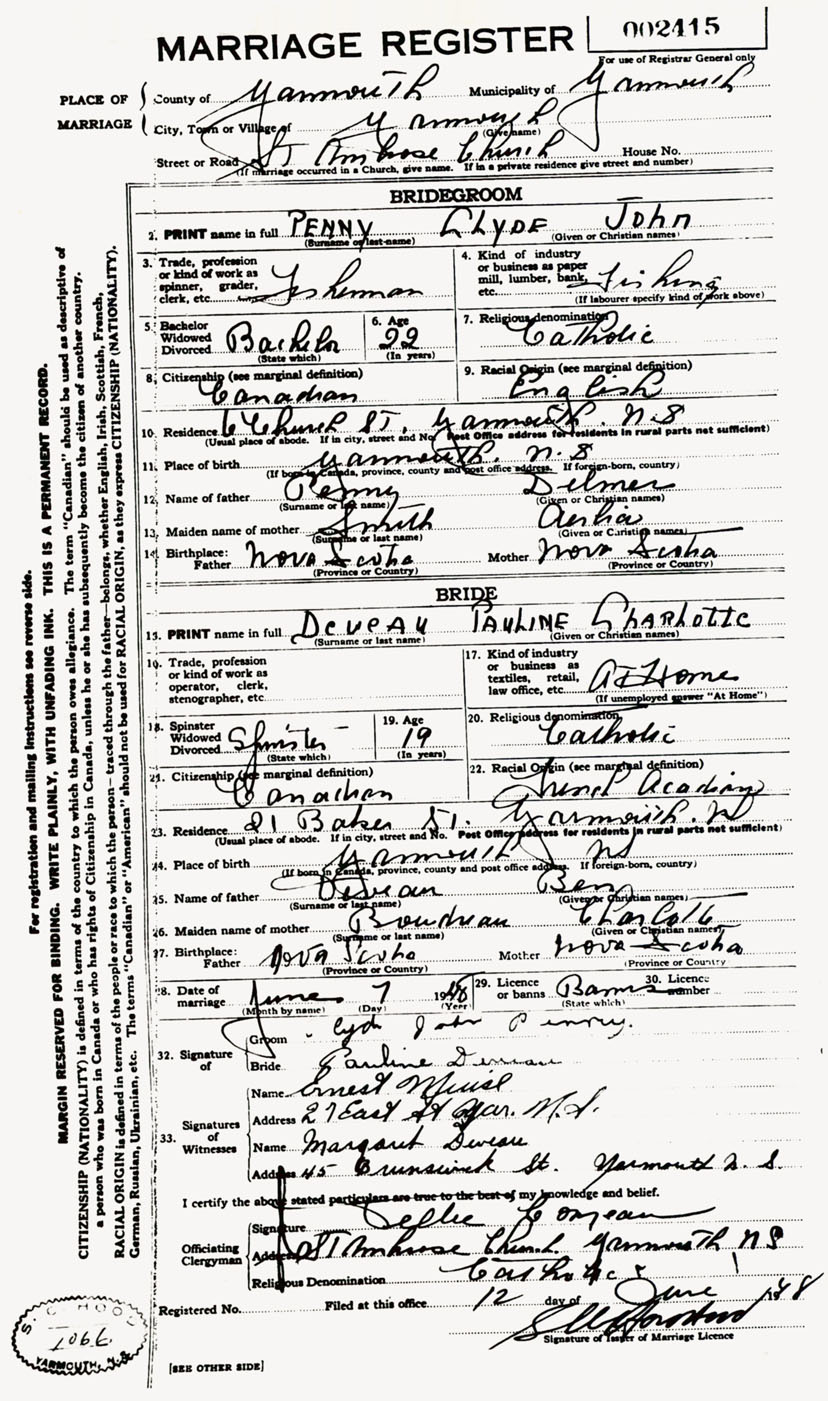 MARRIAGE REGISTER
002415
For use of Registrar General only
PLACE OF MARRIAGE
County of Yarmouth Municipality of Yarmouth
City, Town or Village of Yarmouth
(Give name)
Street or Road St Ambrose Church House No.
(If marriage occurred in a Church, give name. If in a private residence give street and number)
BRIDEGROOM
2. PRINT name in full PENNY CLYDE JOHN
(Surname or last-name) (Given or Christian names)
3. Trade, profession or kind of work as spinner, grader, clerk, etc. Fisherman
4. Kind of industry or business as paper mill, lumber, bank, etc. Fishing
(If labourer specify kind of work above)
5. Bachelor Widowed Divorced Bachelor
(State which)
6. Age 22
(In years)
7. Religious denomination Catholic
8. Citizenship (see marginal definition) Canadian
9. Racial Origin (see marginal definition) English
10. Residence 6 Church St. Yarmouth. N.S
(Usual place of abode. If in city, street and No. Post Office address for residents in rural parts not sufficient)
11. Place of birth Yarmouth. N.S
(If born in Canada, province, county and post office address. If foreign-born, country)
12. Name of father Penny Delmer
(Surname or last name) (Given or Christian names)
13. Maiden name of mother Smith
(Surname or last name) (Given or Christian names)
14. Birthplace: Father Nova Scotia Mother Nova Scotia
(Province or Country) (Province or Country)
BRIDE
15. PRINT name in full DEVEAU PAULINE CHARLOTTE
(Surname or last name) (Given or Christian names)
16. Trade, profession or kind of work as operator, clerk, stenographer, etc.
17. Kind of industry or business as textiles, retail, law office, etc. At Home
(If unemployed answer "At Home")
18. Spinster Widowed Divorced Spinster
(State which)
19. Age 19
(In years)
20. Religious denomination Catholic
21. Citizenship (see marginal definition) Canadian
22. Racial Origin (see marginal definition) French Acadian
23. Residence 21 Baker St. Yarmouth. NS
(Usual place of abode. If in city, street and No. Post Office address for residents in rural parts not sufficient)
24. Place of birth Yarmouth NS
(If born in Canada, province, county and post office address. If foreign-born, country)
25. Name of father Deveau Ben
(Surname or last name) (Given or Christian names)
26. Maiden name of mother Boudreau Charlotte
(Surname or last name) (Given or Christian names)
27. Birthplace: Father Nova Scotia Mother Nova Scotia
(Province or Country) (Province or Country)
28. Date of marriage June 7 1948
(Month by name) (Day) (Year)
29. Licence or banns Banns
(State which)
30. Licence number
32. Signature of
Groom Clyde John Penny.
Bride Pauline Deveau
33. Signatures of Witnesses
Name Ernest Muise
Address 27 East St Yar. N.S.
Name Margaret Deveau
Address 45 Brunswick St. Yarmouth N.S.
I certify the above stated particulars are true to the best of my knowledge and belief.
Officiating Clergyman
Signature Comeau
Address St Ambrose Church Yarmouth NS
Religious Denomination Catholic
Registered No. Filed at this office 12 day of June 1948
Signature of Issuer of Marriage Licence
[SEE OTHER SIDE]
S. C. HOOD
7907
YARMOUTH, N.S.
For registration and mailing instructions see reverse side.
MARGIN RESERVED FOR BINDING. WRITE PLAINLY, WITH UNFADING INK. THIS IS A PERMANENT RECORD.
CITIZENSHIP (NATIONALITY) is defined in terms of the country to which the person owes allegiance. The term "Canadian" should be used as descriptive of
a person who was born in Canada or who has rights of Citizenship in Canada, unless he or she has subsequently become the citizen of another country.
RACIAL ORIGIN is defined in terms of the people or race to which the person—traced through the father—belongs, whether English, Irish, Scottish, French,
German, Russian, Ukrainian, etc. The terms "Canadian" or "American" should not be used for RACIAL ORIGIN, as they express CITIZENSHIP (NATIONALITY).